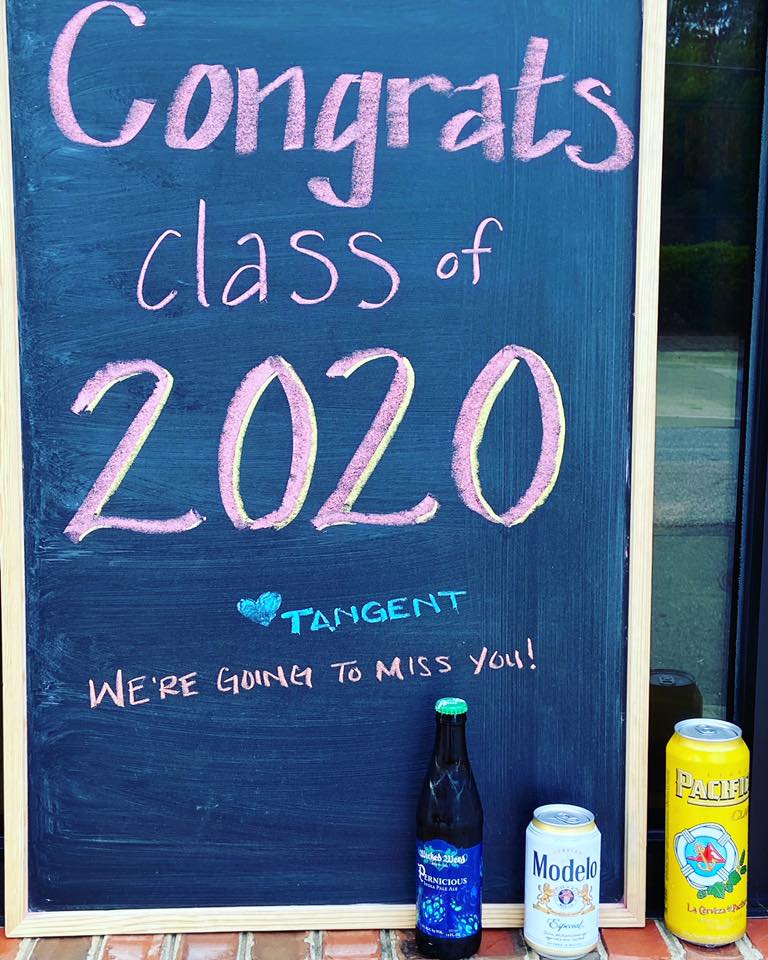 Congrats
class of
2020
TANGENT
WE'RE GOING TO MISS YOU!
Wicked Weed
PERNICIOUS
INDIA PALE ALE
Modelo
Especial
PACIFIC
La Cerveza del